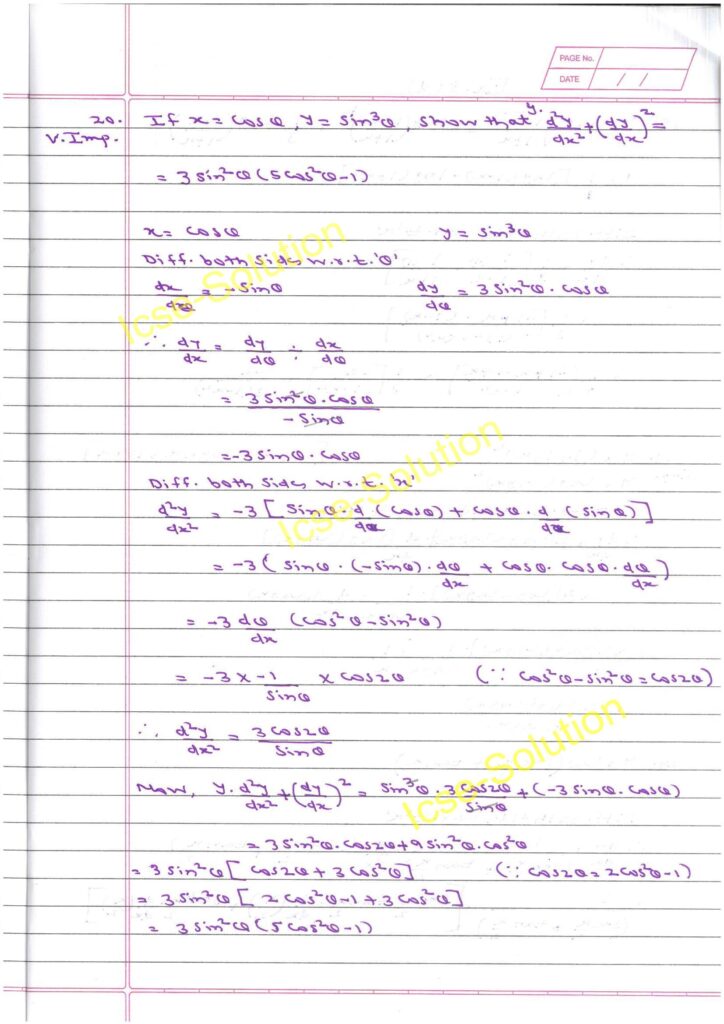 PAGE No.
DATE / /
20. If x = cosθ, y = sin³θ, show that y. d²y/dx² + (dy/dx)² =
V.Imp.
= 3 sin²θ (5cos²θ-1)
x = cosθ y = sin³θ
Diff. both sides w.r.t. 'θ'
dx/dθ = -sinθ dy/dθ = 3 sin²θ · cosθ
∴ dy/dx = dy/dθ ÷ dx/dθ
= 3 sin²θ · cosθ / - sinθ
= -3 sinθ · cosθ
Diff. both sides w.r.t. 'x'
d²y/dx² = -3 [ sinθ · d/dx (cosθ) + cosθ · d/dx (sinθ) ]
= -3 ( sinθ · (-sinθ) · dθ/dx + cosθ · cosθ · dθ/dx )
= -3 dθ/dx (cos²θ - sin²θ)
= -3 x -1/sinθ x cos2θ (∵ cos²θ - sin²θ = cos2θ)
∴ d²y/dx² = 3 cos2θ / sinθ
Now, y. d²y/dx² + (dy/dx)² = sin³θ · 3 cos2θ/sinθ + (-3 sinθ · cosθ)
= 3 sin²θ · cos2θ + 9 sin²θ · cos²θ
= 3 sin²θ [ cos2θ + 3 cos²θ ] (∵ cos2θ = 2cos²θ - 1)
= 3 sin²θ [ 2 cos²θ - 1 + 3 cos²θ ]
= 3 sin²θ (5cos²θ - 1)
Icse-Solution
Icse-Solution
Icse-Solution